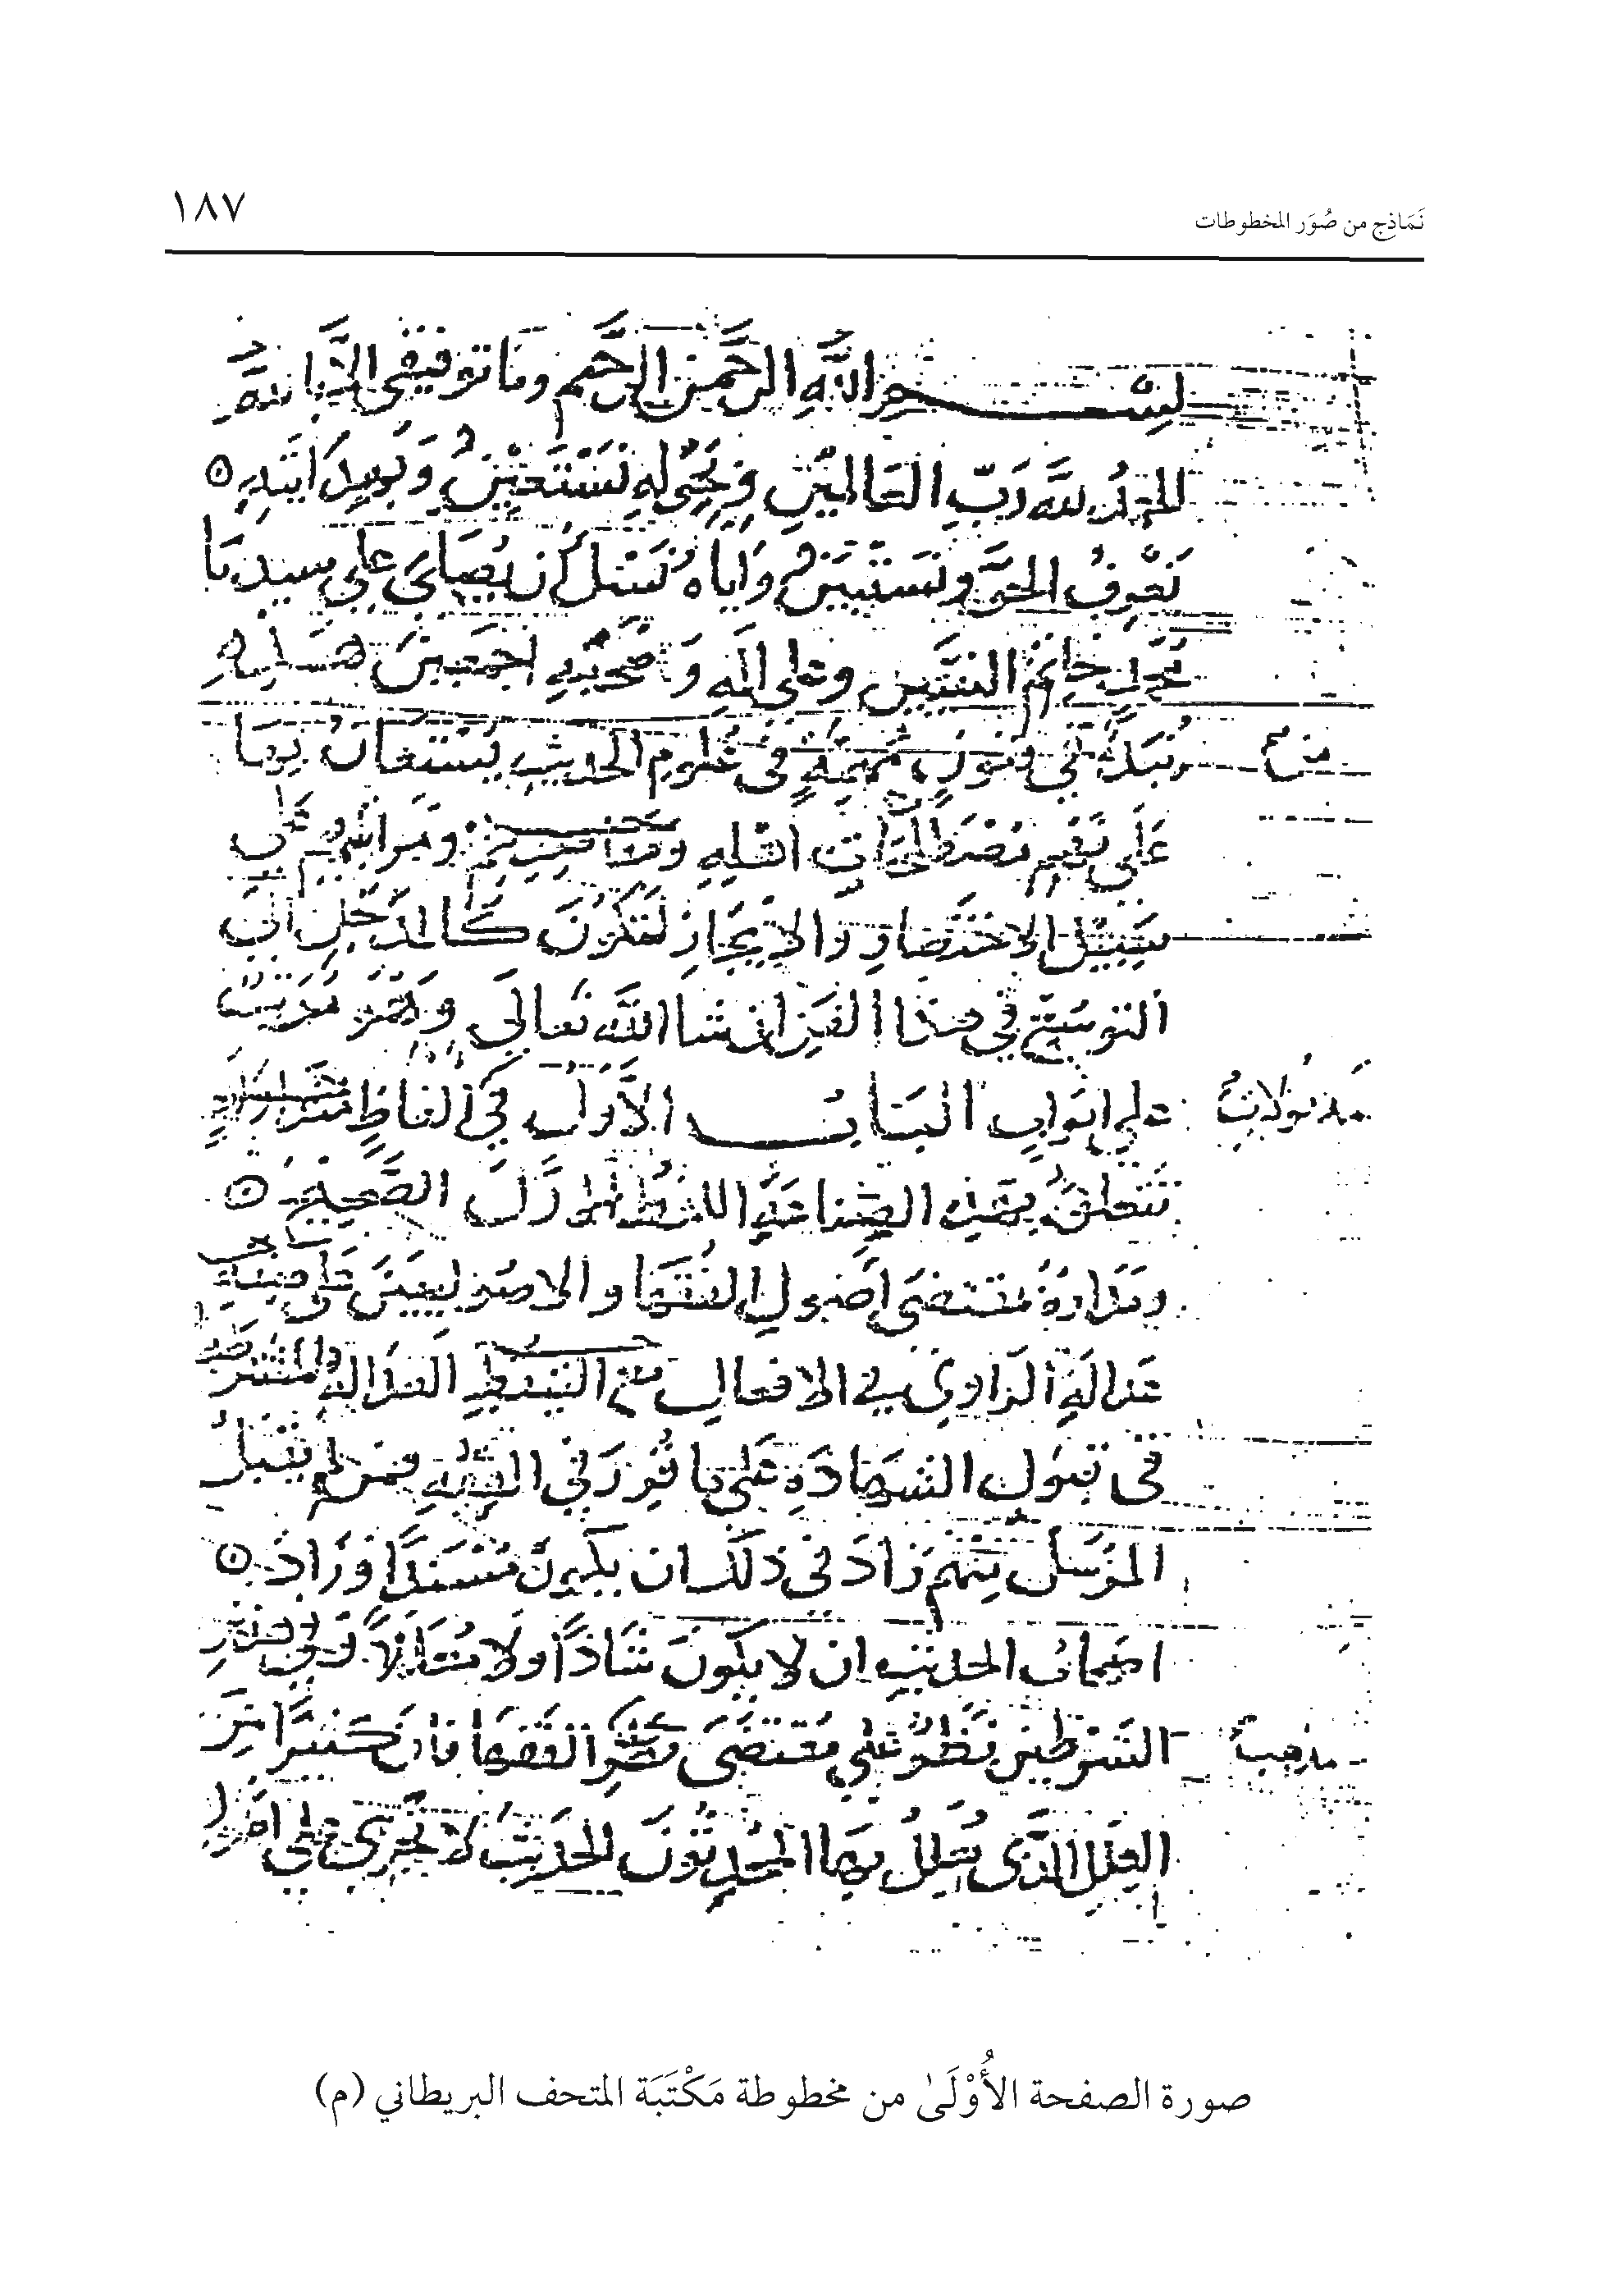 نَمَاذِج من صُوَر المخطوطات
١٨٧
بسم الله الرحمن الرحيم وما توفيقي الا بالله
الحمد لله رب العالمين وبحوله نستعين وبهدايته
نعرف الحق ونستبين واياه نسئل ان يصلي على سيدنا
محمد خاتم النبيين وعلى اله وصحبه اجمعين هذه
نبذة في فنون مهمة في علوم الحديث يستعان بها
على فهم مصطلحات اهله ومراتبهم على
سبيل الاختصار والايجاز لتكون كالمدخل الى
التوسع في هذا الفن ان شا الله تعالى وهو مرتب
على ابواب الباب الاول في الفاظ
مدلولات
تتعلق بهذه الصناعة اللفظ الاول الصحيح
ومداره بمقتضى اصول الفقها والاصوليين على صفة
عدالة الراوي في الافعال مع التيقظ العدالة المشترطة
في قبول الشهادة على ما قرر في الفقه فمن لم يقبل
المرسل منهم زاد في ذلك ان يكون مسندا وزاد
اصحاب الحديث ان لا يكون شاذا ولا معللا وفي هذين
الشرطين نظر على مقتضى نظر الفقها فان كثيرا من
مذهب
العلل التي يعلل بها المحدثون الحديث لا تجري على اصول
صورة الصفحة الأُوْلَىٰ من مخطوطة مَكْتَبَة المتحف البريطاني (م)